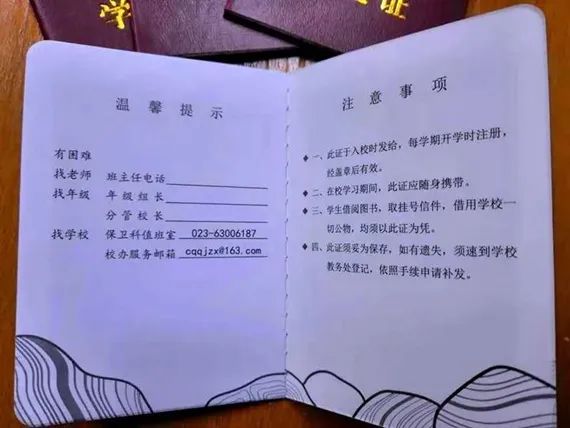 学
证
温馨提示
有困难
找老师 班主任电话
找年级 年级组长
分管校长
找学校 保卫科值班室 023-63006187
校办服务邮箱 cqqjzx@163.com
注意事项
一、此证于入校时发给，每学期开学时注册，
经盖章后有效。
二、在校学习期间，此证应随身携带。
三、学生借阅图书，取挂号信件，借用学校一
切公物，均须以此证为凭。
四、此证须妥为保存，如有遗失，须速到学校
教务处登记，依照手续申请补发。